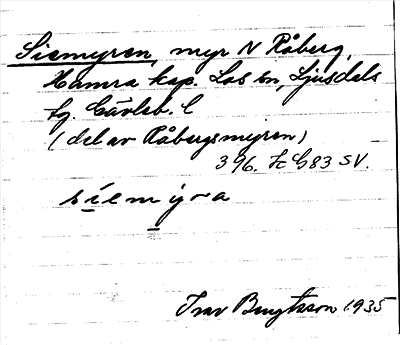 Siemyren, myr N Råberg,
Hamra kap. Los sn, Ljusdals
fg. Gävleb. l
(del av Råbergsmyren)
396. Jz G83 SV.
síemyra
Ivar Bengtsson 1935